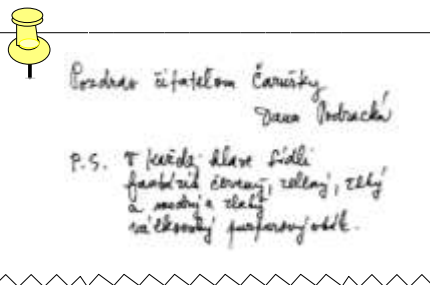 Pozdrav čitateľom Čarušky
Dana Podracká
P.S. V každej hlave sídli
fantázia červený, zelený, žltý
a modrý a zlatý
purpurový oblak.